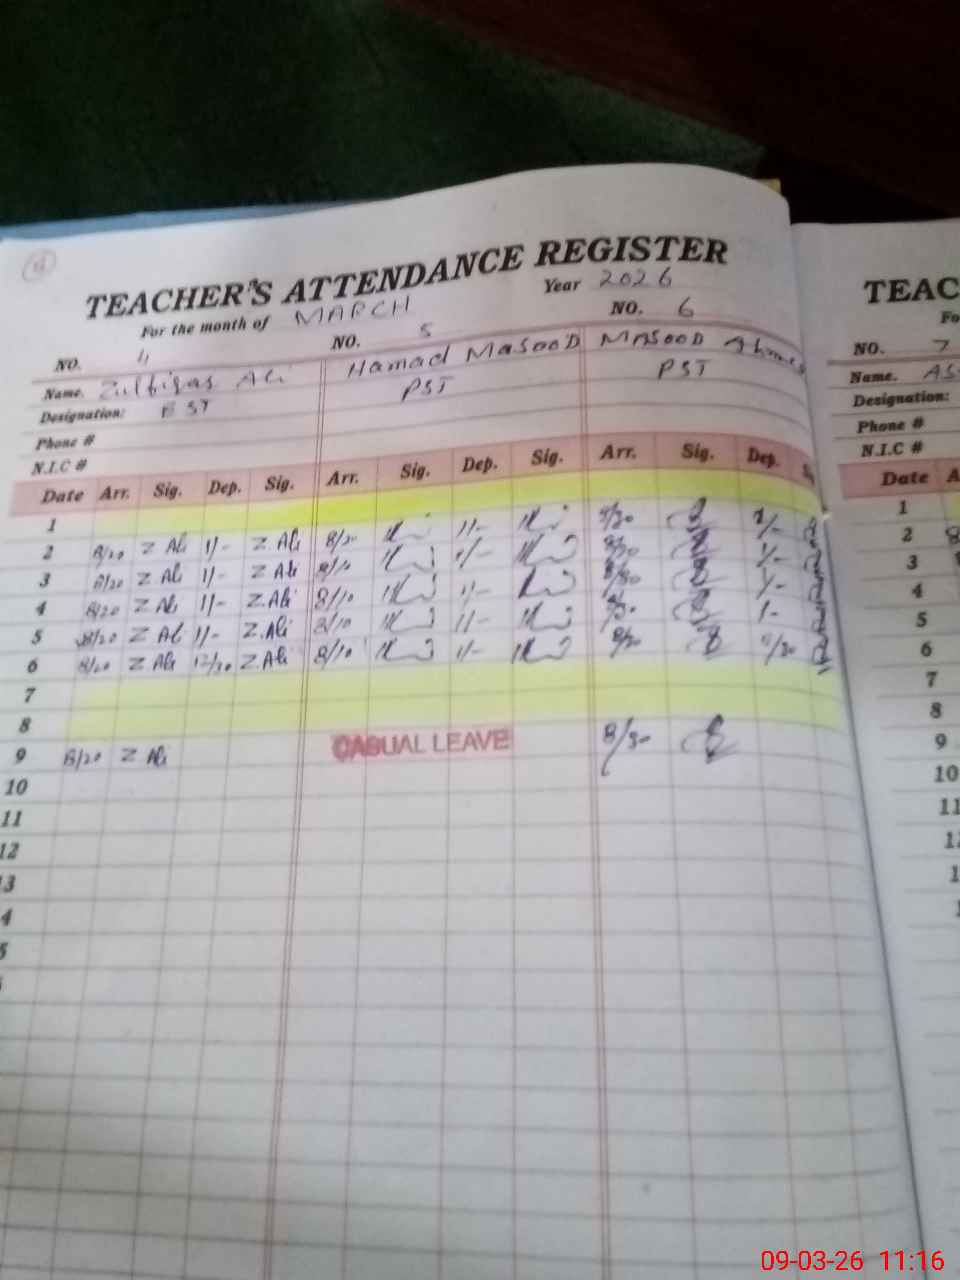 4
TEACHER'S ATTENDANCE REGISTER
For the month of MARCH Year 2026
NO. 4 NO. 5 NO. 6
Name. Zulfiqas Ali Hamad MasooD MASOOD Ahmed
Designation: EST PST PST
Phone #
N.I.C #
Date Arr. Sig. Dep. Sig. Arr. Sig. Dep. Sig. Arr. Sig. Dep.
1
2 8/20 Z Ali 1/- Z. Ali 8/20 1/- 8/30 1/-
3 8/20 Z Ali 1/- Z Ali 8/10 1/- 8/30 1/-
4 8/20 Z Ali 1/- Z.Ali 8/10 1/- 8/30 1/-
5 8/20 Z Ali 1/- Z.Ali 8/10 1/- 8/30 1-
6 8/20 Z Ali 12/30 Z Ali 8/10 1/- 8/30
7
8
9 8/20 Z Ali CASUAL LEAVE 8/30
10
11
12
13
4
5
TEAC
Fo
NO. 7
Name. AS
Designation:
Phone #
N.I.C #
Date A
1
2 8
3
4
5
6
7
8
9
10
11
1
1
09-03-26 11:16